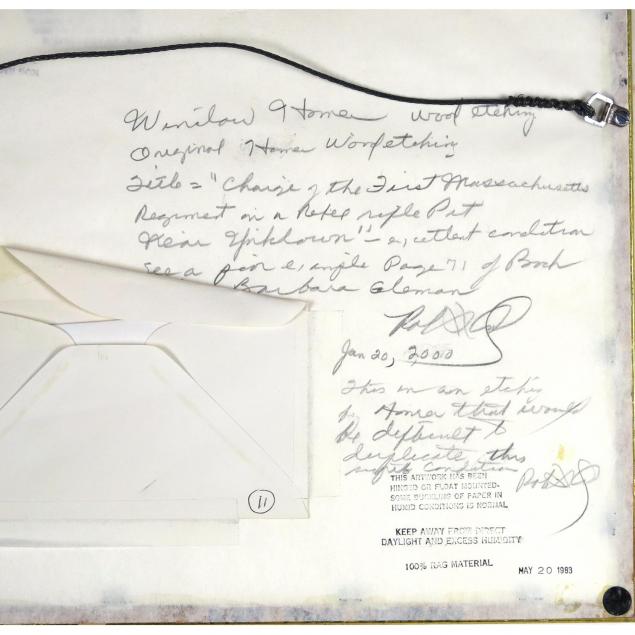 Winslow Homer wood etching
Original Homer Woodetching
Title = "Charge of the First Massachusetts
Regiment on a Rebel rifle Pit
Near Yorktown" - excellent condition
See a fine example Page 71 of Book
Barbara Gleman
Jan 20, 2,000
This is an etching
by Homer that would
be difficult to
duplicate, this
superb condition
THIS ARTWORK HAS BEEN
HINGED OR FLOAT MOUNTED-
SOME BUCKLING OF PAPER IN
HUMID CONDITIONS IS NORMAL
KEEP AWAY FROM DIRECT
DAYLIGHT AND EXCESS HUMIDITY
100% RAG MATERIAL
MAY 20 1983
11